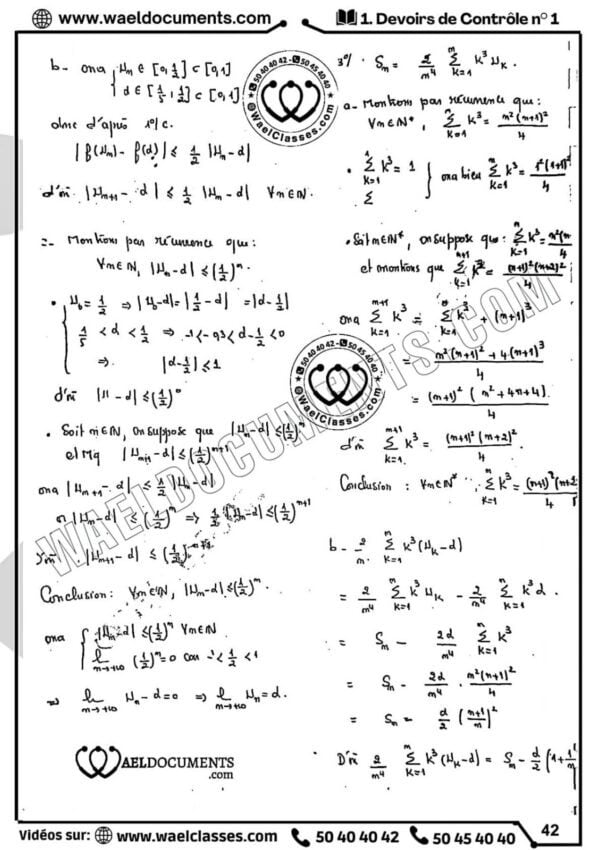 www.waeldocuments.com
1. Devoirs de Contrôle n° 1
b- ona { Un ∈ [0,1/2] ⊂ [0,1]
d ∈ [1/5, 1/2] ⊂ [0,1]
donc d'après 1°/c.
|f(Un) - f(d)| ≤ 1/2 |Un - d|
d'où |Un+1 - d| ≤ 1/2 |Un - d| ∀n∈IN.
Montrons par récurrence que:
∀n∈IN, |Un - d| ≤ (1/2)^n.
• { U0 = 1/2 ⇒ |U0 - d| = |1/2 - d| = |d - 1/2|
1/5 < d < 1/2 ⇒ -1 < -0,3 < d - 1/2 < 0
⇒ |d - 1/2| ≤ 1
d'où |U - d| ≤ (1/2)^0
• Soit n∈IN, on suppose que |Un - d| ≤ (1/2)^n
et Mq |Un+1 - d| ≤ (1/2)^n+1
ona |Un+1 - d| ≤ 1/2 |Un - d|
or |Un - d| ≤ (1/2)^n ⇒ 1/2 |Un - d| ≤ (1/2)^n+1
d'où |Un+1 - d| ≤ (1/2)^n+1
Conclusion: ∀n∈IN, |Un - d| ≤ (1/2)^n
ona { |Un - d| ≤ (1/2)^n ∀n∈IN
lim n→+∞ (1/2)^n = 0 car -1 < 1/2 < 1
⇒ lim n→+∞ Un - d = 0 ⇒ lim n→+∞ Un = d.
WAELDOCUMENTS
.com
3°/ Sn = 2/n^4 Σ k=1 n k^3 Uk.
a- Montrons par récurrence que:
∀n∈IN*, Σ k=1 n k^3 = n²(n+1)²/4
• Σ k=1 1 k^3 = 1 } ona bien Σ k=1 n k^3 = 1²(1+1)²/4
Σ
• Soit n∈IN*, on suppose que: Σ k=1 n k^3 = n²(n
et montrons que Σ k=1 n+1 k^3 = (n+1)²(n+2)²/4
ona Σ k=1 n+1 k^3 = Σ k=1 n k^3 + (n+1)^3
= n²(n+1)² + 4(n+1)^3 / 4
= (n+1)² (n² + 4n + 4) / 4
d'où Σ k=1 n+1 k^3 = (n+1)²(n+2)²/4
Conclusion: ∀n∈IN*, Σ k=1 n k^3 = (n+1)²(n+2/4
b- 2/n Σ k=1 n k^3 (Uk - d)
= 2/n^4 Σ k=1 n k^3 Uk - 2/n^4 Σ k=1 n k^3 d.
= Sn - 2d/n^4 Σ k=1 n k^3
= Sn - 2d/n^4 . n²(n+1)²/4
= Sn - d/2 (n+1/n)²
D'où 2/n^4 Σ k=1 n k^3 (Uk - d) = Sn - d/2 (1+1/n
50 40 40 42 - 50 45 40 40
@WaelClasses.com
50 40 40 42 - 50 45 40 40
@WaelClasses.com
WAELDOCUMENTS.COM
42
Vidéos sur: www.waelclasses.com 50 40 40 42 50 45 40 40